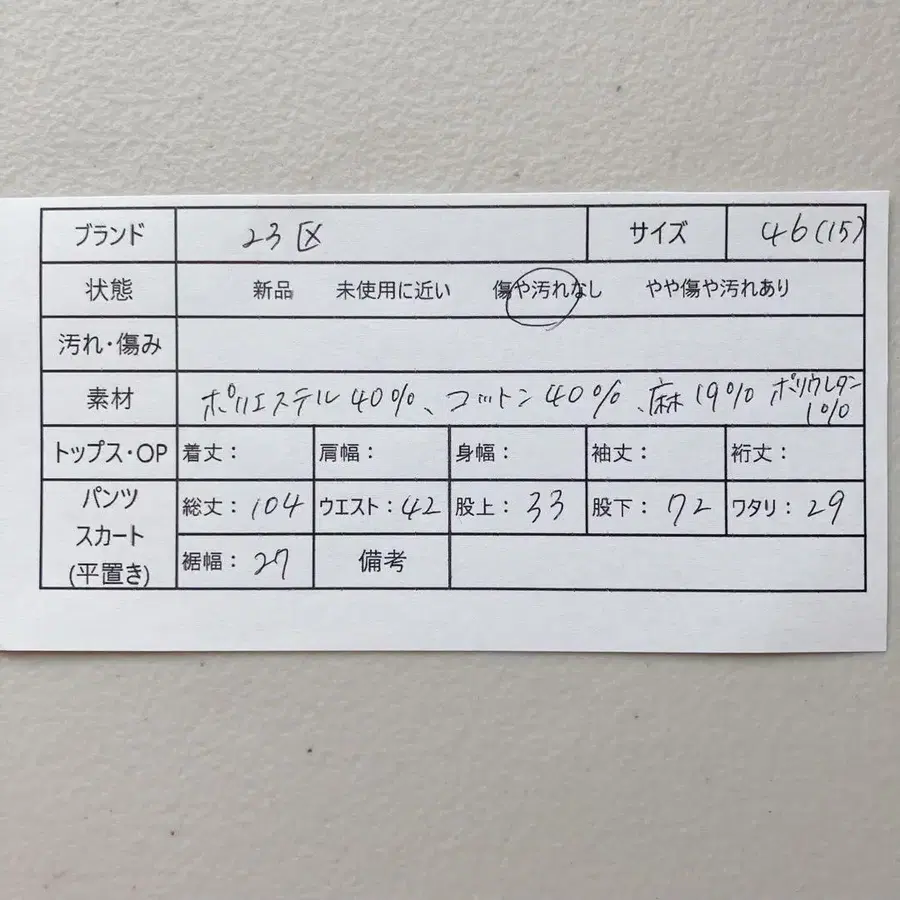 ブランド 23区 サイズ 46(15)
状態 新品 未使用に近い 傷や汚れなし やや傷や汚れあり
汚れ・傷み
素材 ポリエステル40%、コットン40%、麻19% ポリウレタン
1%
トップス・OP 着丈: 肩幅: 身幅: 袖丈: 裄丈:
パンツ
スカート
(平置き)
総丈:104 ウエスト:42 股上:33 股下:72 ワタリ:29
裾幅:27 備考